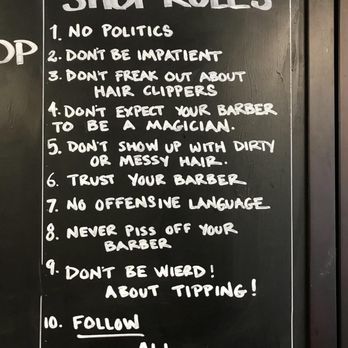 SHOP RULES
OP
1. NO POLITICS
2. DON'T BE IMPATIENT
3. DON'T FREAK OUT ABOUT
HAIR CLIPPERS
4. DON'T EXPECT YOUR BARBER
TO BE A MAGICIAN.
5. DON'T SHOW UP WITH DIRTY
OR MESSY HAIR.
6. TRUST YOUR BARBER
7. NO OFFENSIVE LANGUAGE
8. NEVER PISS OFF YOUR
BARBER
9. DON'T BE WIERD!
ABOUT TIPPING!
10. FOLLOW
ALL